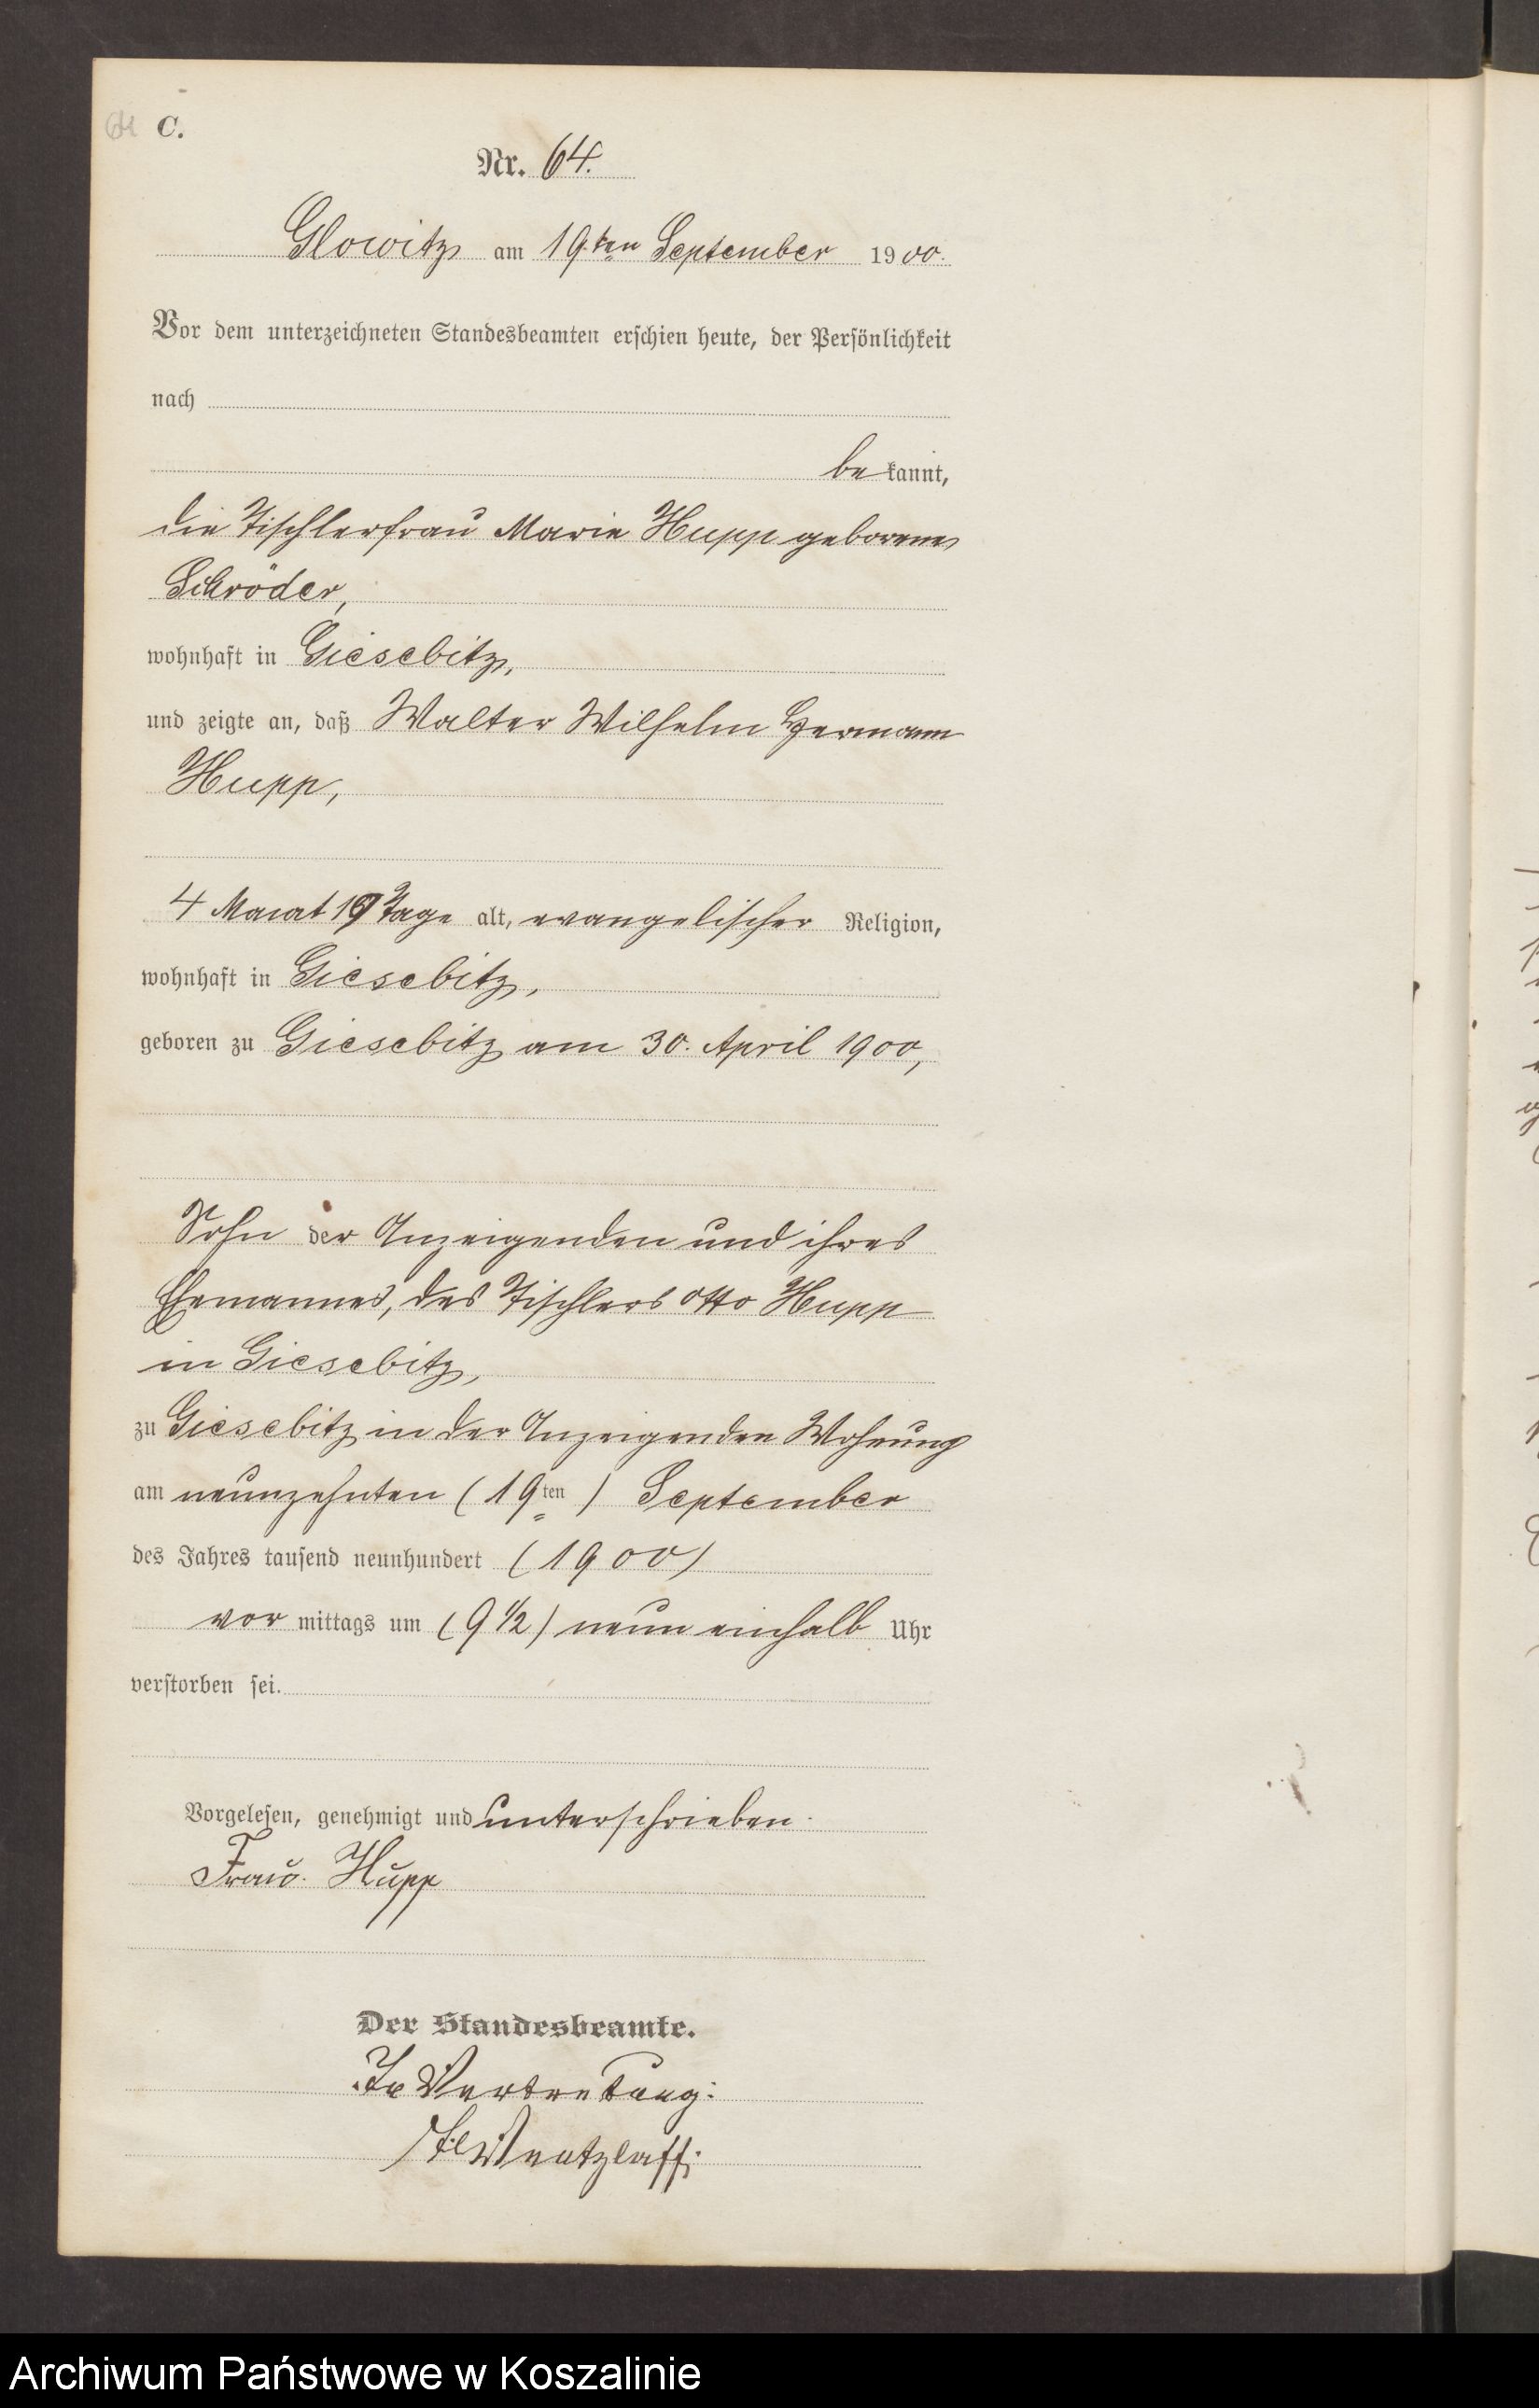 64 C.
Nr. 64.
Glowitz am 19.ten September 1900.
Vor dem unterzeichneten Standesbeamten erschien heute, der Persönlichkeit
nach
be kannt,
die Tischlerfrau Marie Hupp geborene
Schröder,
wohnhaft in Giesebitz,
und zeigte an, daß Walter Wilhelm Hermann
Hupp,
4 Monat 19 Tage alt, evangelischer Religion,
wohnhaft in Giesebitz,
geboren zu Giesebitz am 30. April 1900,
Sohn der Anzeigenden und ihres
Ehemannes, des Tischlers Otto Hupp
in Giesebitz,
zu Giesebitz in der Anzeigenden Wohnung
am neunzehnten (19ten) September
des Jahres tausend neunhundert (1900)
vor mittags um (9 1/2) neun einhalb Uhr
verstorben sei.
Vorgelesen, genehmigt und unterschrieben.
Frau. Hupp
Der Standesbeamte.
In Vertretung:
Wentzlaff.
Archiwum Państwowe w Koszalinie